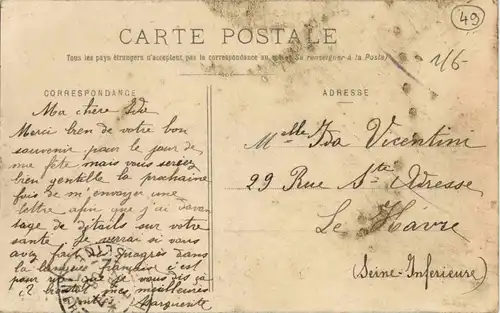 49
CARTE POSTALE
Tous les pays étrangers n'acceptent pas la correspondance au (Se renseigner à la Poste)
1/6-
CORRESPONDANCE
ADRESSE
Ma chère Ida
Merci bien de votre bon
souvenir pour le jour de
ma fête mais vous seriez
bien gentille la prochaine
fois de m'envoyer une
lettre afin que j'ai davan
tage de détails sur votre
santé. Je verrai si vous
avez fait du progrès dans
la langue française c'est
pour que je vous dis ça
à bientôt mes meilleures
Marguerite
Melle Ida Vicentini
29 Rue Ste Adresse
Le Hâvre
(Seine-Inférieure)